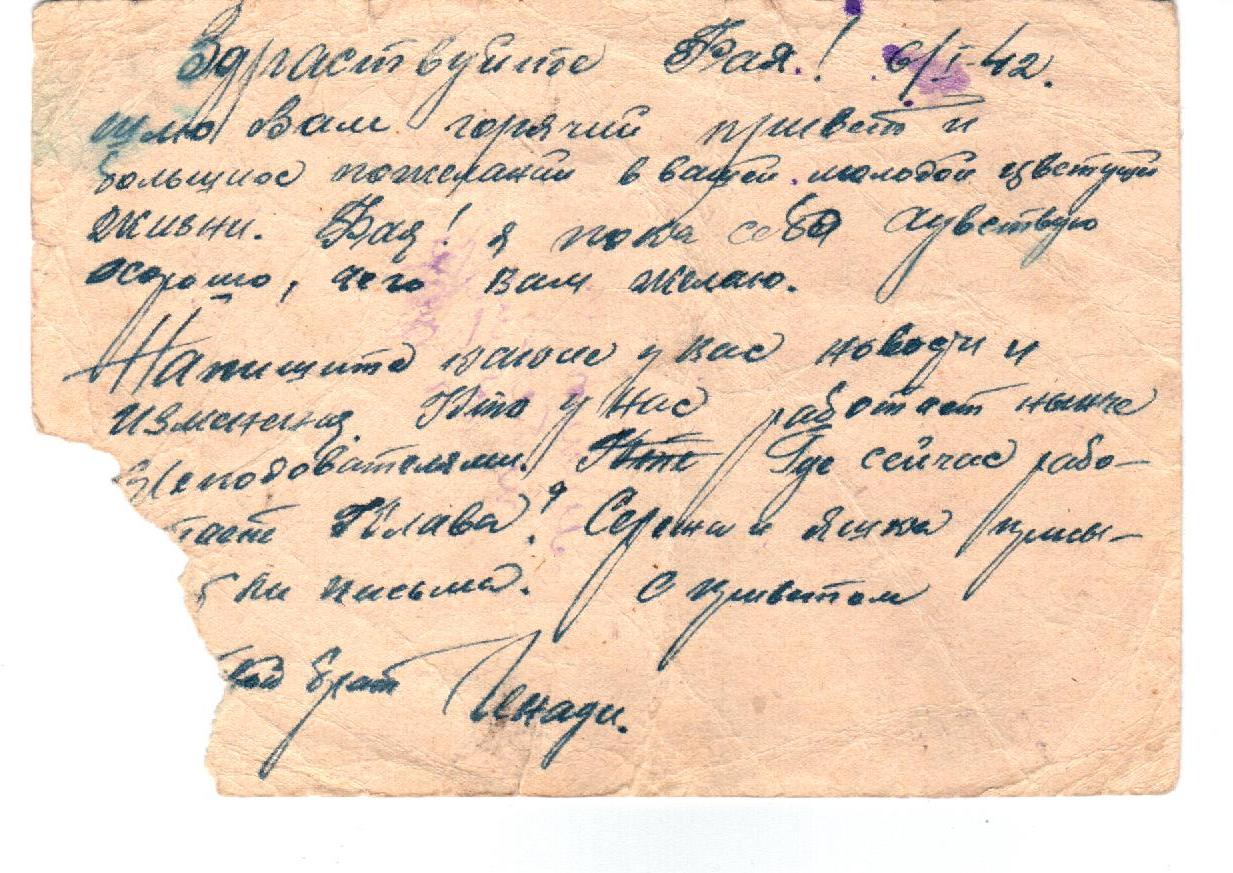 Здраствуйте Рая! 6/I-42.
шлю Вам горячий привет и
большиос пожеланий в вашей молодой цветущей
жизни. Рая! я пока себя чувствую
хорошо, чего вам желаю.
Напишите какие у вас новости и
изменения. Кто у нас работает нынче
преподователями. Где сейчас рабо-
тает Клава? Сережа и Яшка присы-
ли письма. С приветом
брат Генади.